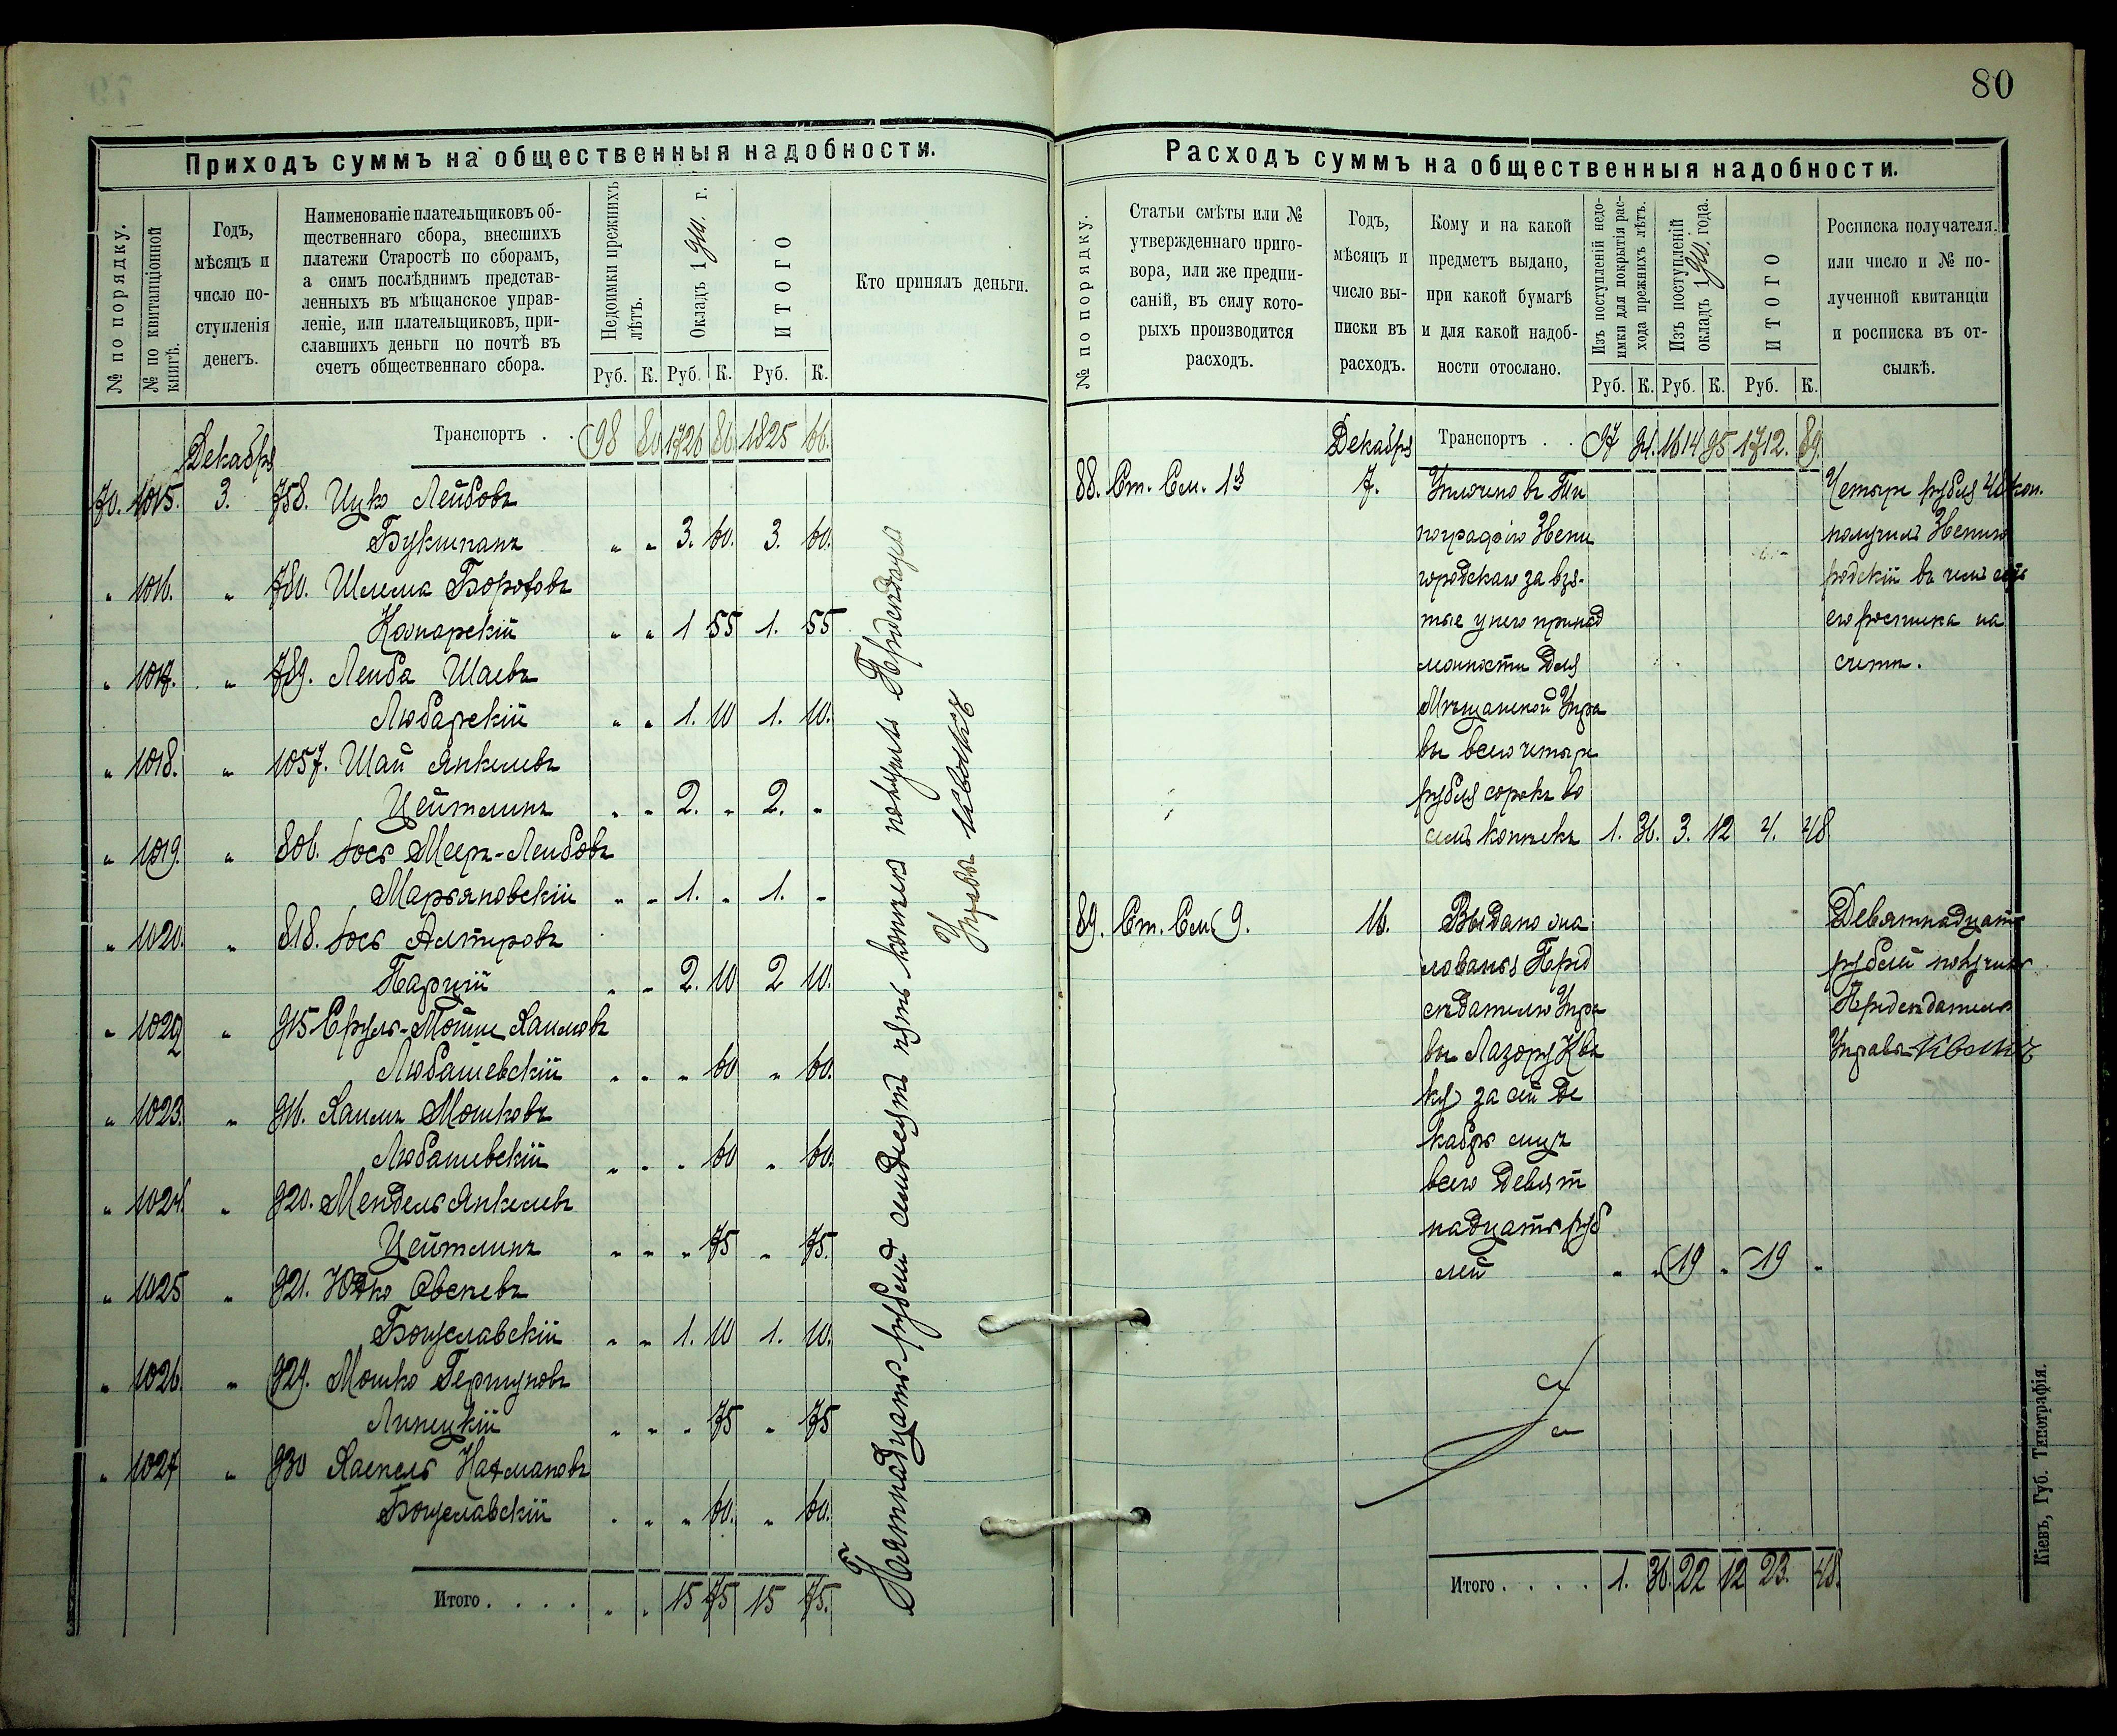 80
Приходъ суммъ на общественныя надобности.
№ по порядку.
№ по квитанціонной
книгѣ.
Годъ,
мѣсяцъ и
число по-
ступленія
денегъ.
Наименованіе плательщиковъ об-
щественнаго сбора, внесшихъ
платежи Старостѣ по сборамъ,
а симъ послѣднимъ представ-
ленныхъ въ мѣщанское управ-
леніе, или плательщиковъ, при-
славшихъ деньги по почтѣ въ
счетъ общественнаго сбора.
Недоимки прежнихъ
лѣтъ.
Окладъ 1911 г.
ИТОГО
Руб. К. Руб. К. Руб. К.
Кто принялъ деньги.
Декабря Транспортъ . . 98 80 1726 86. 1825 66.
70. 1015. 3. 758. Ицко Лейбовъ
Букшпанъ „ „ 3. 60. 3. 60.
„ 1016. „ 780. Шлема Борохов
Комарскій „ „ 1 55 1. 55
„ 1017. „ 789. Лейба Шаевъ
Любарскій „ „ 1. 10 1. 10.
„ 1018. „ 1057. Шая Янкелевъ
Цейтлинъ „ „ 2. „ 2. „
„ 1019. „ 806. Іось Меер-Лейбовъ
Марьяновскій „ „ 1. „ 1. „
„ 1020. „ 818. Іось Алтеровъ
Парцій „ „ 2. 10 2 10.
„ 1022 „ 915 Сруль-Мойше Хаимовъ
Любашевскій „ „ „ 60 „ 60.
„ 1023. „ 916. Хаимъ Мошковъ
Любашевскій „ „ „ 60 „ 60.
„ 1024. „ 920. Мендель Янкелевъ
Цейтлинъ „ „ „ 75 „ 75.
„ 1025 „ 921. Юдко Овсеевъ
Богуславскій „ „ 1. 10 1. 10.
„ 1026. „ 929. Мошко Гершуновъ
Липецкій „ „ „ 75 „ 75
„ 1027 „ 930 Хаскель Нахмановъ
Богуславскій „ „ „ 60. „ 60.
Итого . . . . „ „ 15 75 15 75.
Пятнадцать рублей семдесять пять копѣекъ получилъ Предсѣдатель
Управы
Расходъ суммъ на общественныя надобности.
№ по порядку.
Статьи смѣты или №
утвержденнаго приго-
вора, или же предпи-
саній, въ силу кото-
рыхъ производится
расходъ.
Годъ,
мѣсяцъ и
число вы-
писки въ
расходъ.
Кому и на какой
предметъ выдано,
при какой бумагѣ
и для какой надоб-
ности отослано.
Изъ поступленій недо-
имки для покрытія рас-
хода прежнихъ лѣтъ.
Изъ поступленій
окладъ 1911 года.
ИТОГО
Руб. К. Руб. К. Руб. К.
Росписка получателя.
или число и № по-
лученной квитанціи
и росписка въ от-
сылкѣ.
Декабря Транспортъ . . 97 94. 1614 95 1712. 89.
88. Ст. См. 7. Уплочено въ Ти
пографію Звени
городскаго за взя-
тые у него принад
лежности для
Мѣщанской Упра
вы всего четыре
рубля сорокъ во
семь копѣекъ 1. 36. 3. 12 4. 48
Четыре рубля 48 коп.
получилъ Звениго
родскій въ чемъ есть
его росписка на
счетѣ.
89. Ст. См. 9. 16. Выдано жа
лованья Пред
сѣдателю Упра
вы Лазорю Ква
ку за сей де
кабрь мцъ
всего девят
надцать руб
лей „ „ 19 „ 19 „
Девятнадцать
рублей получилъ
Предсѣдатель
Управы
Итого . . . . 1. 36. 22 12 23. 48.
Кіевъ, Губ. Типографія.